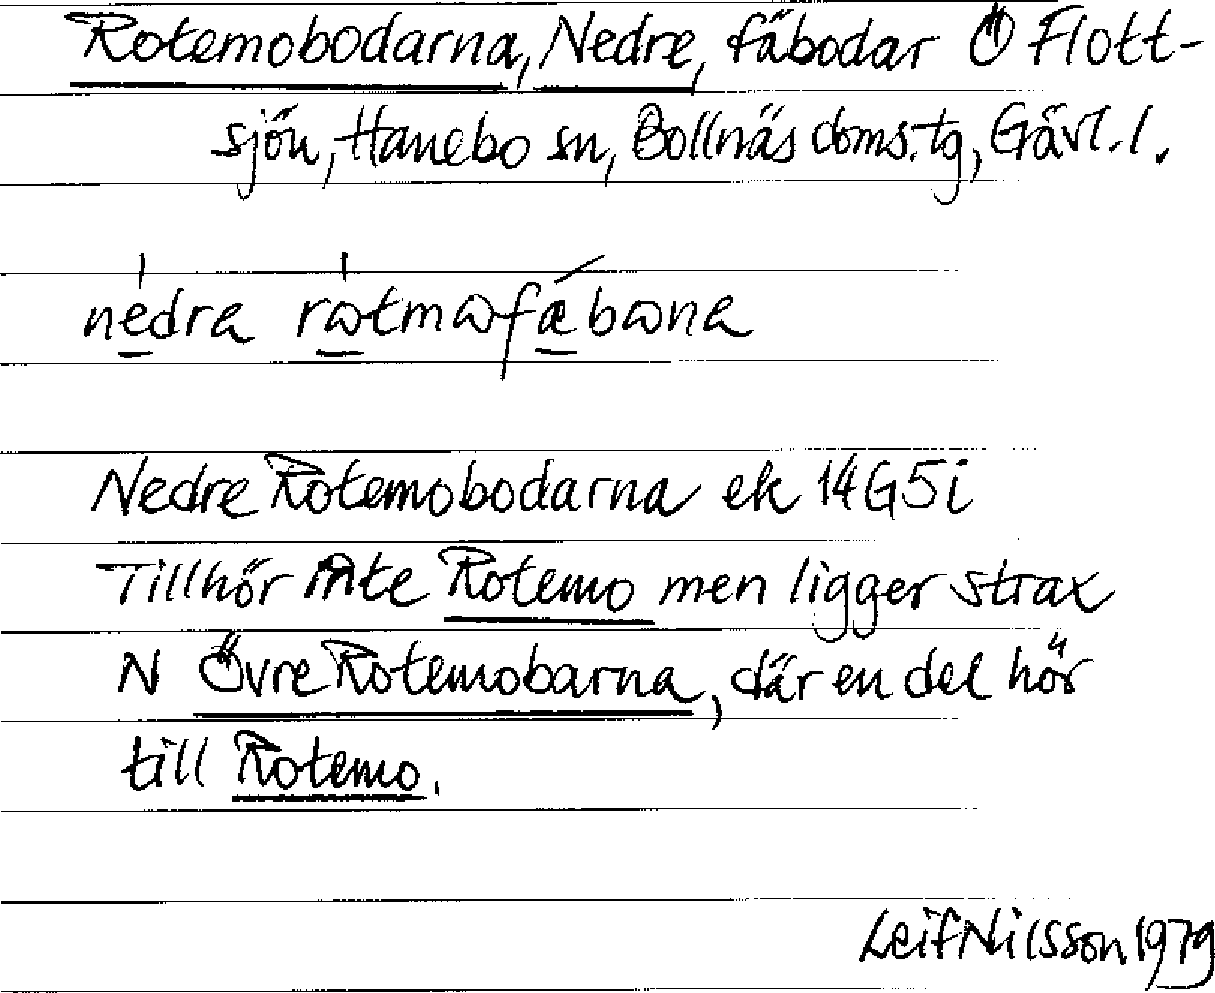 Rotemobodarna, Nedre, fäbodar Ö Flott-
sjön, Hanebo sn, Bollnäs doms.tg, Gävl. l.
nedra rωtmωfæbωna
Nedre Rotemobodarna ek 14G5i
Tillhör inte Rotemo men ligger strax
N Övre Rotemobarna, där en del hör
till Rotemo.
Leif Nilsson 1979